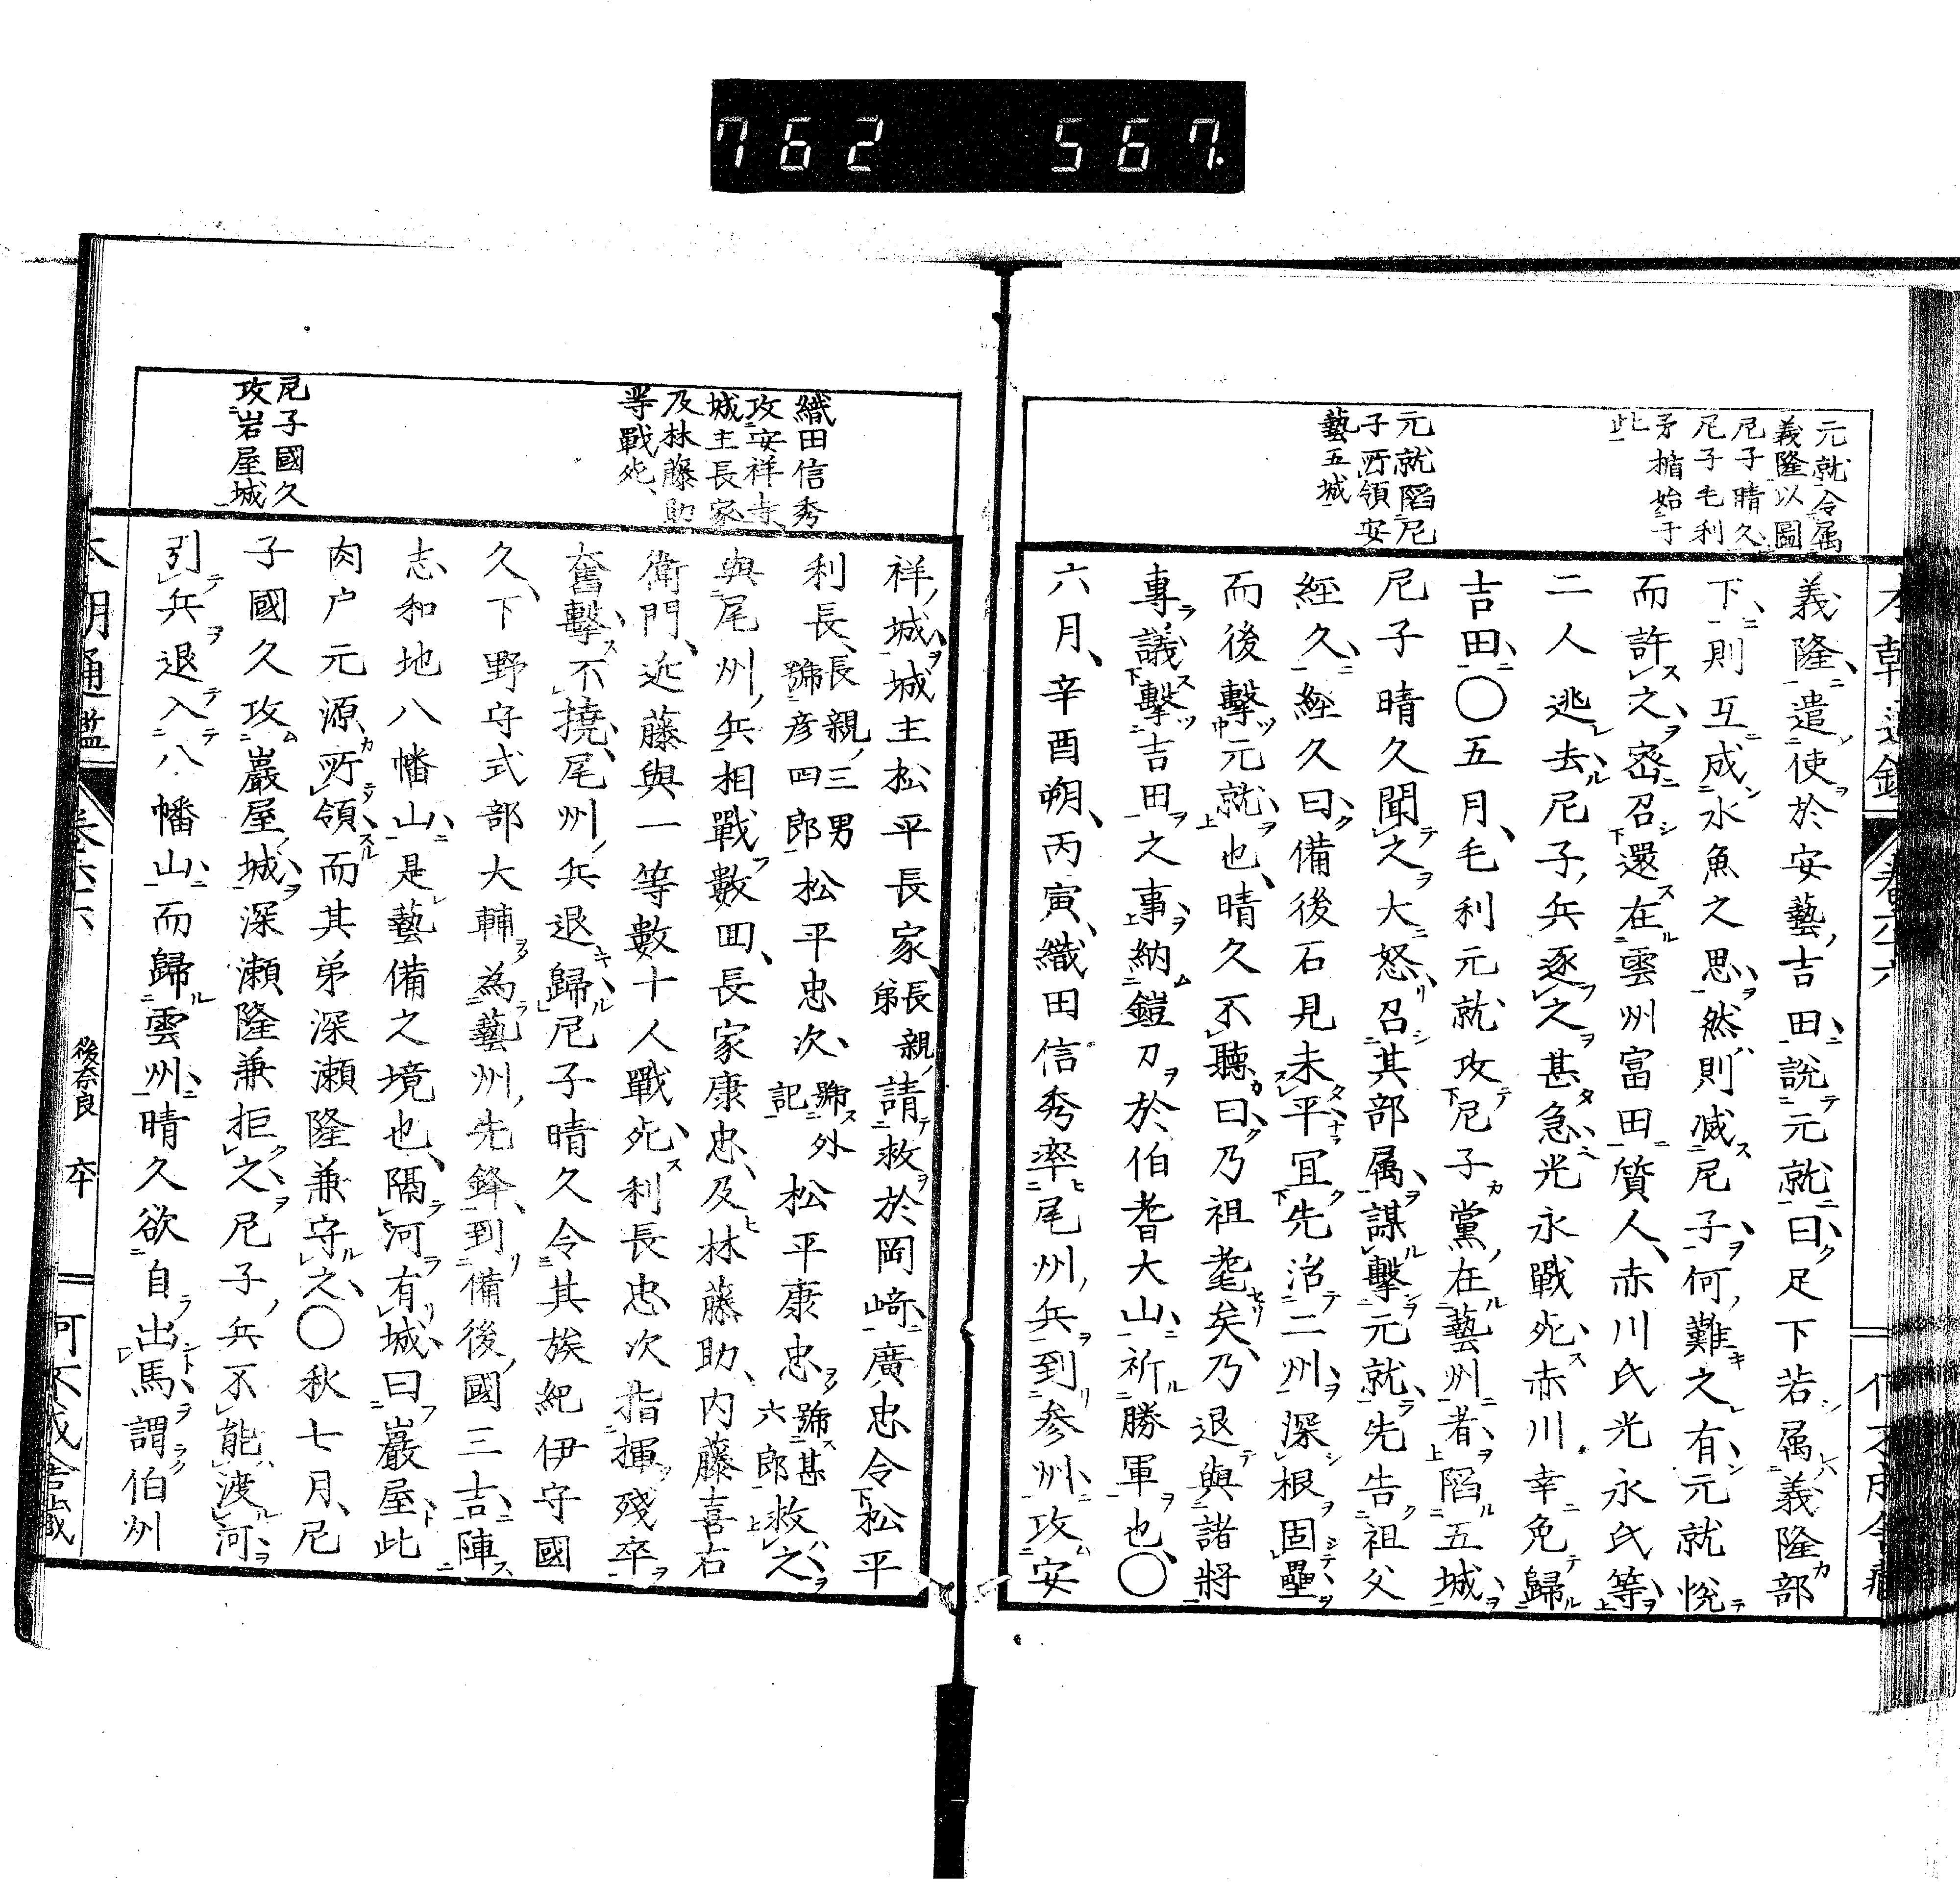 762 567.
元就令属
義隆以圖
尼子晴久
尼子毛利
矛楯始于
此
元就陷尼
子所領安
藝五城
義隆遣使於安藝吉田說元就曰足下若属義隆部
下則互成水魚之思然則滅尼子何難之有元就悅
而許之密召還在雲州富田質人赤川氏光永氏等
二人逃去尼子兵逐之甚急光永戰死赤川幸免歸
吉田〇五月毛利元就攻尼子黨在藝州者陷五城
尼子晴久聞之大怒召其部属謀擊元就先告祖父
經久經久曰備後石見未平冝先治二州深根固壘
而後擊元就也晴久不聽曰乃祖耄矣乃退與諸將
專議擊吉田之事納鎧刀於伯耆大山祈勝軍也〇
六月辛酉朔丙寅織田信秀率尾州兵到参州攻安
織田信秀
攻安祥寺
城主長家
及林藤助
等戰死
尼子國久
攻岩屋城
祥城城主松平長家長親弟請救於岡﨑廣忠令松平
利長長親三男號彦四郎松平忠次號外記松平康忠號甚六郎救之
與尾州兵相戰數回長家康忠及林藤助内藤喜右
衛門近藤與一等數十人戰死利長忠次指揮殘卒
奮擊不撓尾州兵退歸尼子晴久令其族紀伊守國
久下野守式部大輔為藝州先鋒到備後國三吉陣
志和地八幡山是藝備之境也隔河有城曰巖屋此
肉戸元源所領而其弟深瀬隆兼守之〇秋七月尼
子國久攻巖屋城深瀬隆兼拒之尼子兵不能渡河
引兵退入八幡山而歸雲州晴久欲自出馬謂伯州
本朝通鑑 卷六六 後奈良